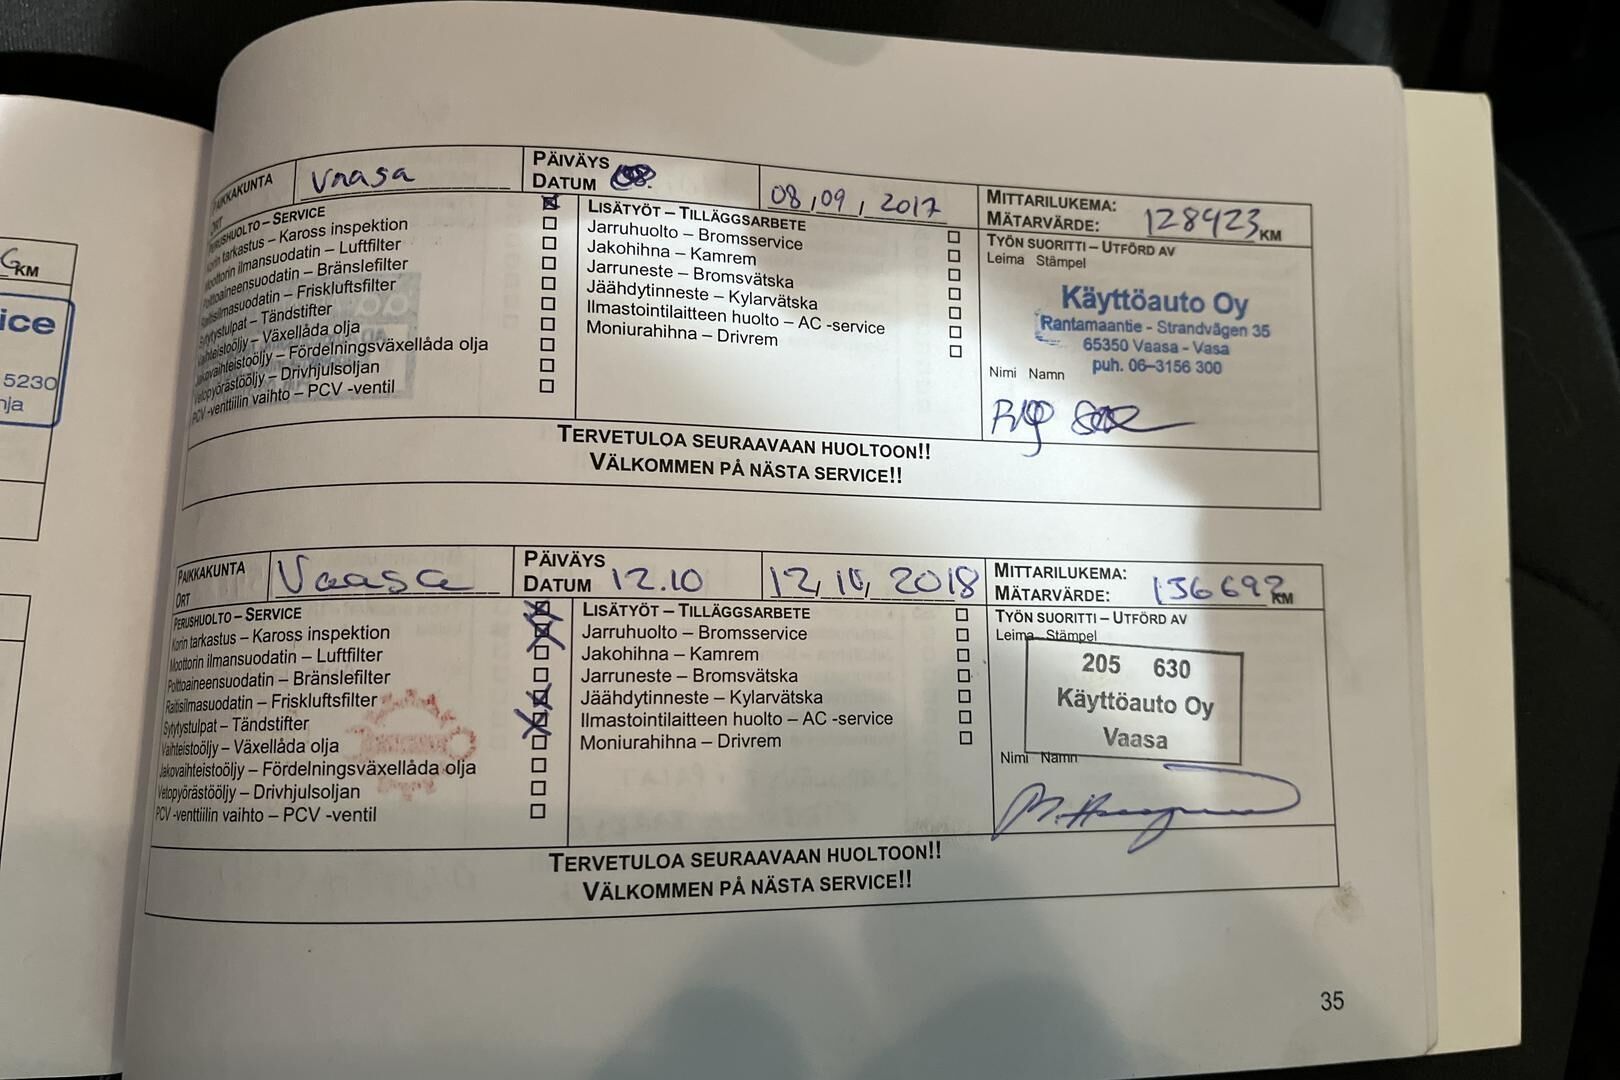 G KM
ice
5230
nja
PAIKKAKUNTA
ORT
Vaasa
PÄIVÄYS
DATUM
08,09, 2017
MITTARILUKEMA:
MÄTARVÄRDE: 128423 KM
PERUSHUOLTO – SERVICE
Korin tarkastus – Kaross inspektion
Moottorin ilmansuodatin – Luftfilter
Polttoaineensuodatin – Bränslefilter
Raitisilmasuodatin – Friskluftsfilter
Sytytystulpat – Tändstifter
Vaihteistoöljy – Växellåda olja
Jakovaihteistoöljy – Fördelningsväxellåda olja
Vetopyörästööljy – Drivhjulsoljan
PCV -venttiilin vaihto – PCV -ventil
LISÄTYÖT – TILLÄGGSARBETE
Jarruhuolto – Bromsservice
Jakohihna – Kamrem
Jarruneste – Bromsvätska
Jäähdytinneste – Kylarvätska
Ilmastointilaitteen huolto – AC -service
Moniurahihna – Drivrem
TYÖN SUORITTI – UTFÖRD AV
Leima Stämpel
Käyttöauto Oy
Rantamaantie - Strandvägen 35
65350 Vaasa - Vasa
puh. 06–3156 300
Nimi Namn
TERVETULOA SEURAAVAAN HUOLTOON!!
VÄLKOMMEN PÅ NÄSTA SERVICE!!
PAIKKAKUNTA
ORT
Vaasa
PÄIVÄYS
DATUM 12.10
12, 10, 2018
MITTARILUKEMA:
MÄTARVÄRDE: 136692 KM
PERUSHUOLTO – SERVICE
Korin tarkastus – Kaross inspektion
Moottorin ilmansuodatin – Luftfilter
Polttoaineensuodatin – Bränslefilter
Raitisilmasuodatin – Friskluftsfilter
Sytytystulpat – Tändstifter
Vaihteistoöljy – Växellåda olja
Jakovaihteistoöljy – Fördelningsväxellåda olja
Vetopyörästööljy – Drivhjulsoljan
PCV -venttiilin vaihto – PCV -ventil
LISÄTYÖT – TILLÄGGSARBETE
Jarruhuolto – Bromsservice
Jakohihna – Kamrem
Jarruneste – Bromsvätska
Jäähdytinneste – Kylarvätska
Ilmastointilaitteen huolto – AC -service
Moniurahihna – Drivrem
TYÖN SUORITTI – UTFÖRD AV
Leima Stämpel
205 630
Käyttöauto Oy
Vaasa
Nimi Namn
TERVETULOA SEURAAVAAN HUOLTOON!!
VÄLKOMMEN PÅ NÄSTA SERVICE!!
35